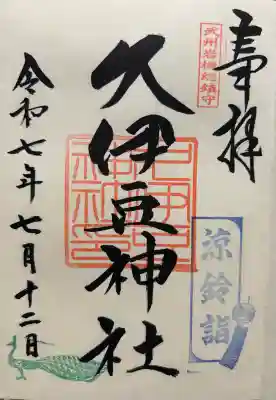 奉拝
武州岩槻総鎮守
久伊豆神社
涼鈴詣
令和七年七月十二日